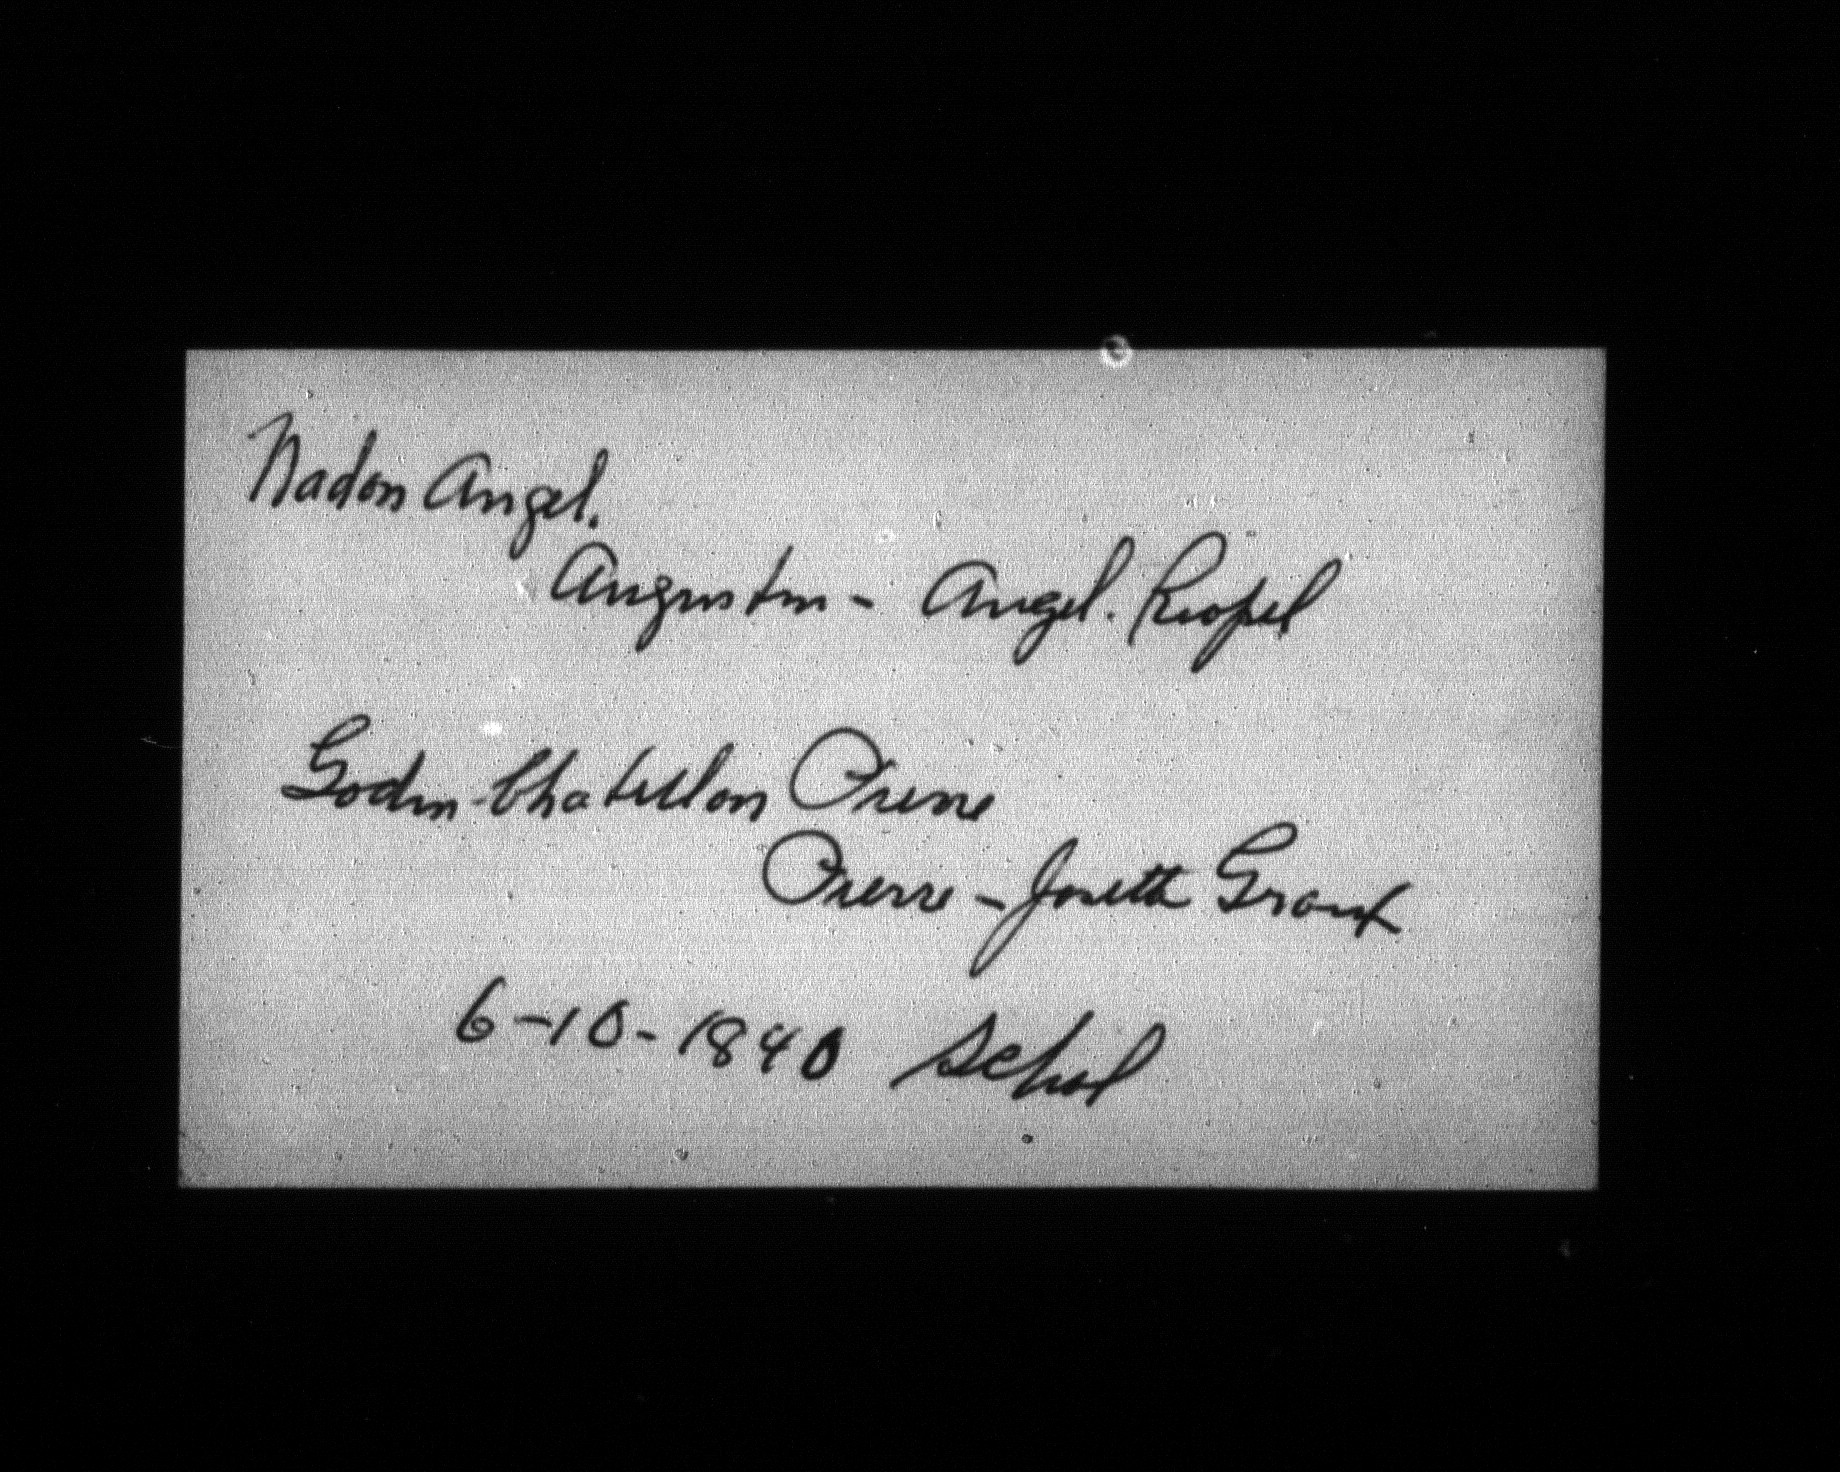 Nadon Angel.
Augustin - Angel. Riopel
Godin-Chatillon Pierre
Pierre - Josette Grant
6-10-1840